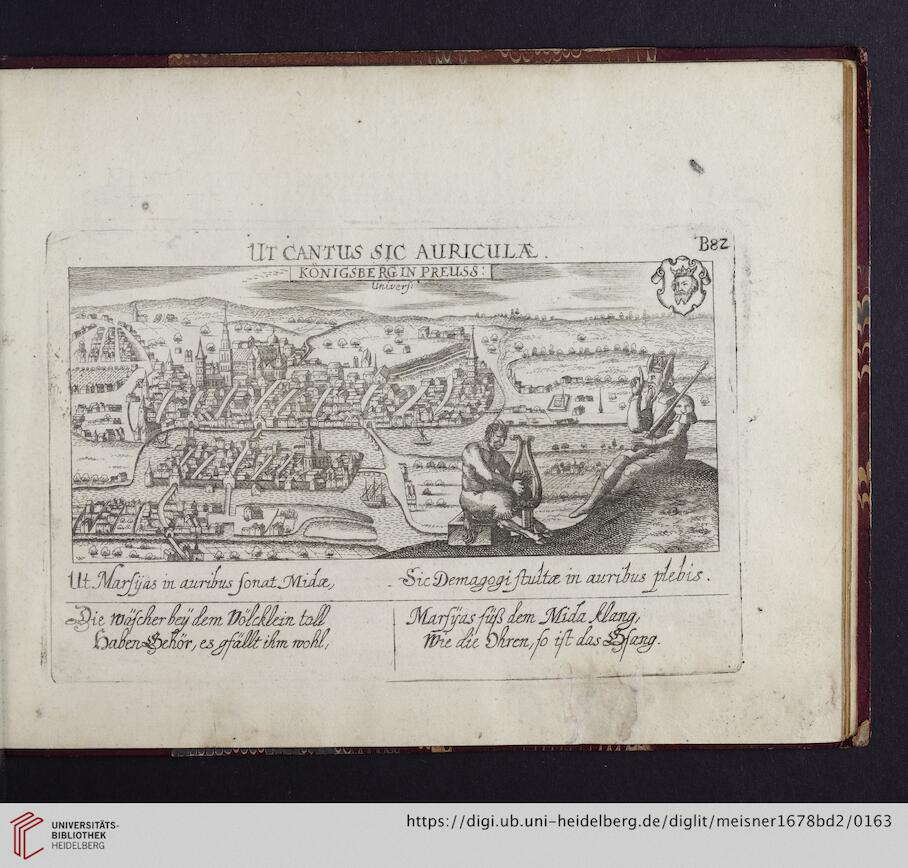 B82
UT CANTUS SIC AURICULÆ.
KÖNIGSBERG IN PREUSS:
Univers:
Ut Marsÿas in auribus sonat Midæ,
Sic Demagogi stultæ in auribus plebis.
Die wäscher beÿ dem Völcklein toll
Haben Gehör, es gfällt ihm wohl,
Marsÿas süß dem Mida klang,
Wie die Ohren, so ist das Gsang.
UNIVERSITÄTS-
BIBLIOTHEK
HEIDELBERG
https://digi.ub.uni-heidelberg.de/diglit/meisner1678bd2/0163